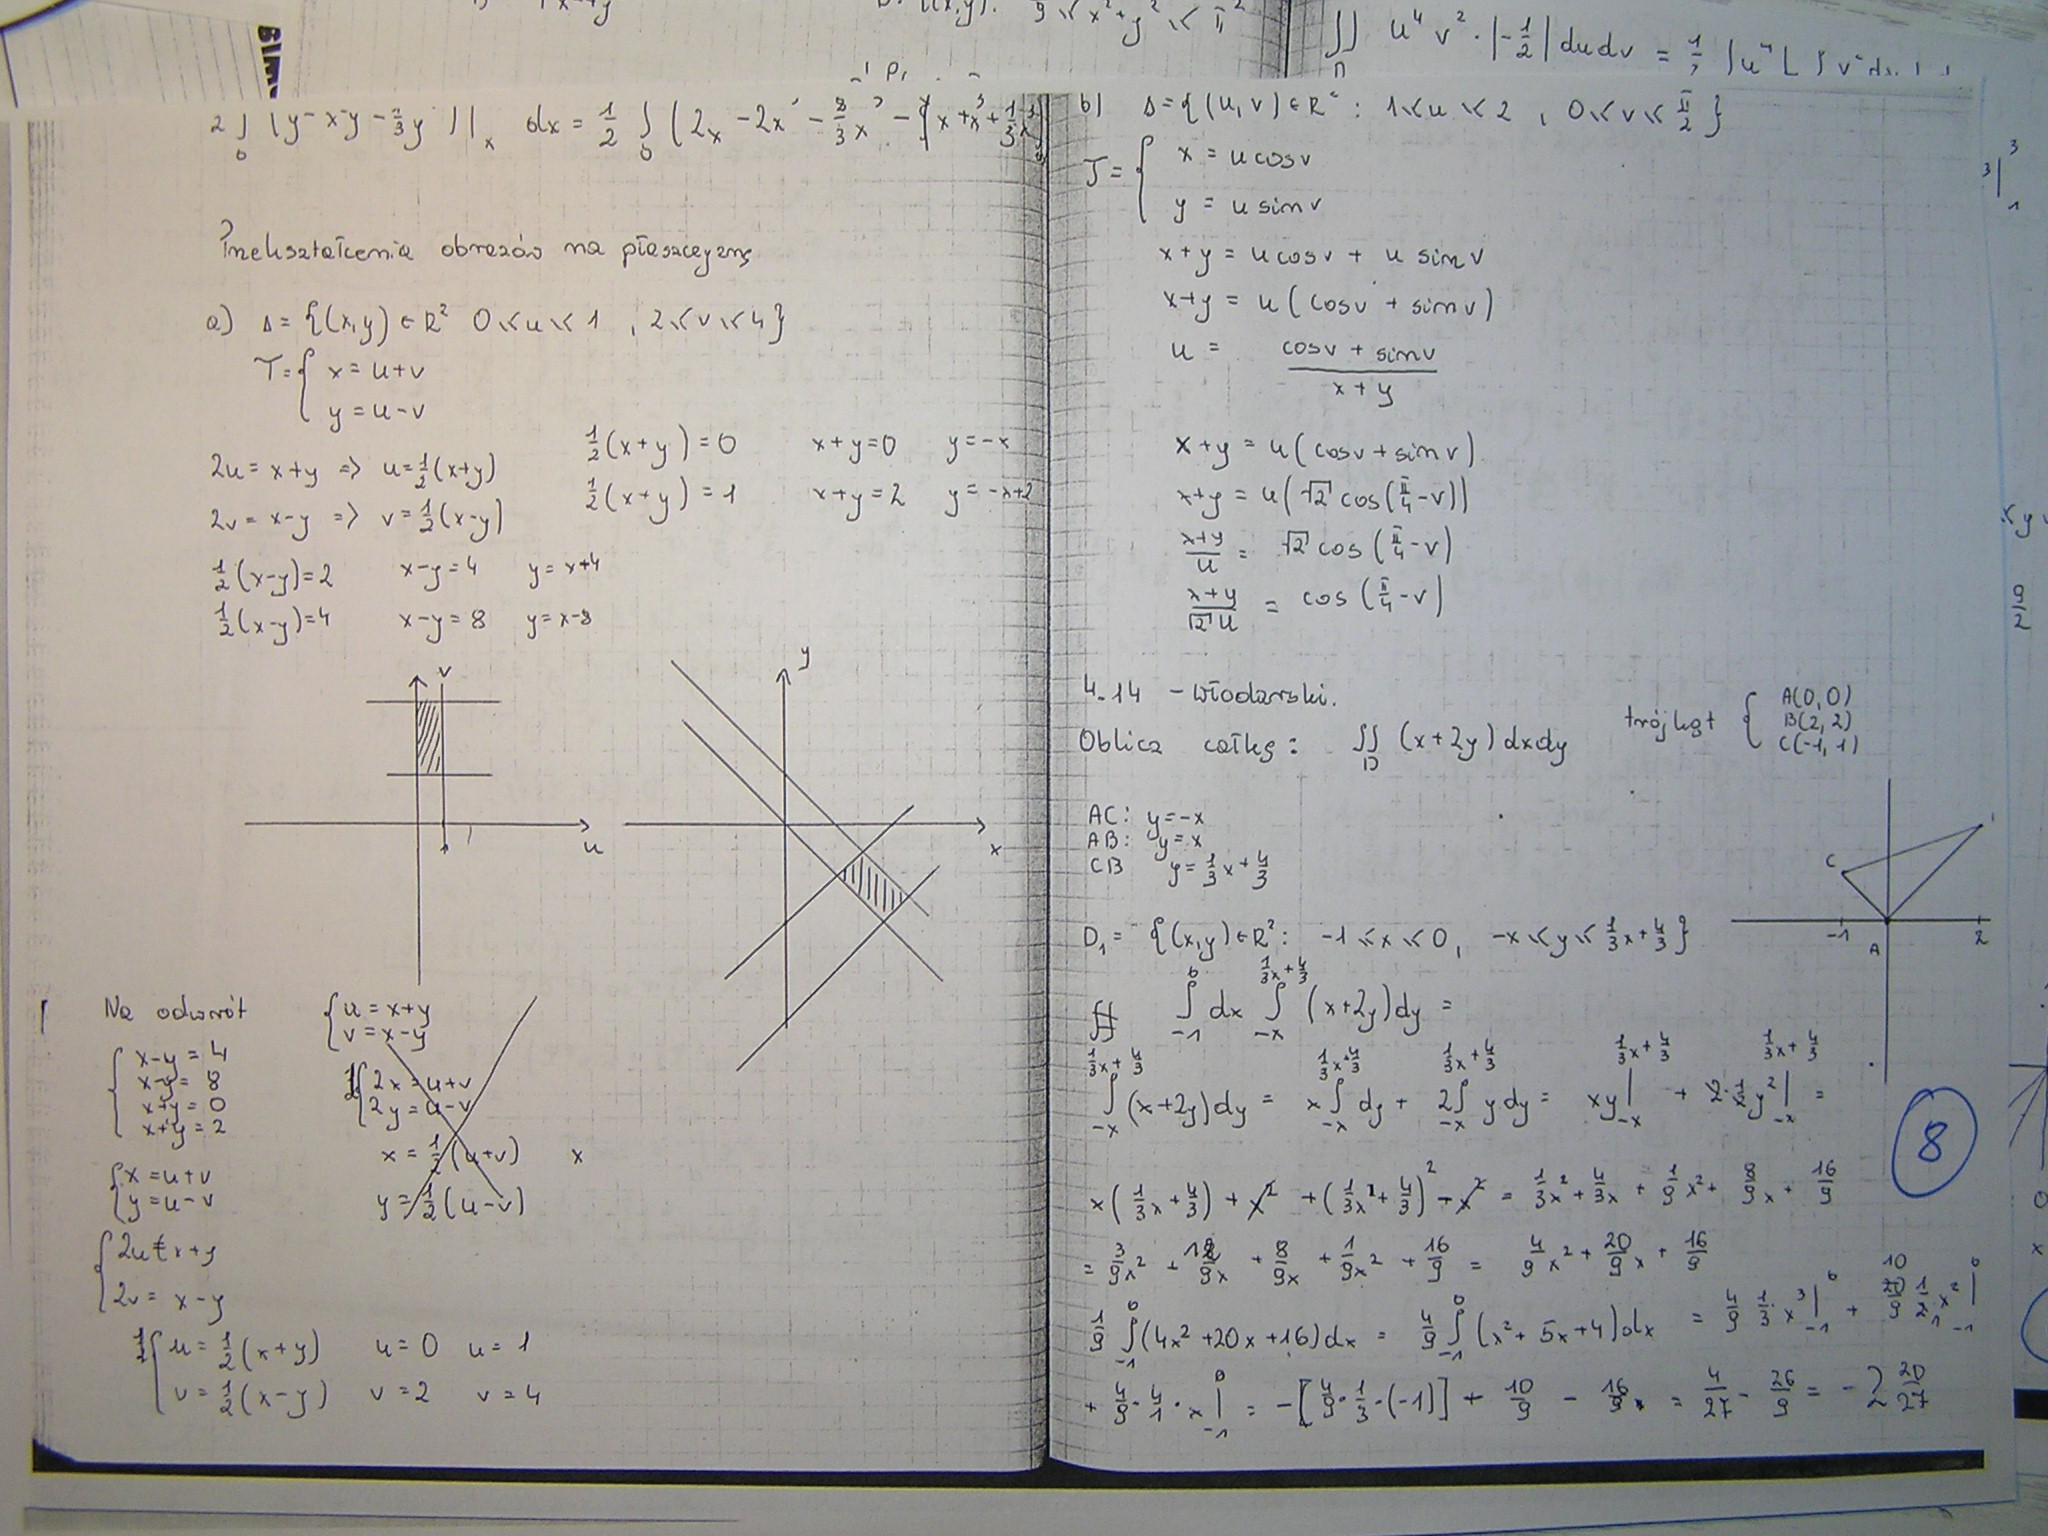 ∬ u⁴ v² · |-1/2| du dv = 1/2
1/9 ≤ x² + y² ≤ π²
dx = 1/2 ∫ (2x - 2x³ - 8/3 x³ -
Przekształcenia obrazów na płaszczyznę
a) Δ = {(x,y) ∈ R² 0 ≤ u ≤ 1 , 2 ≤ v ≤ 4}
T = { x = u+v
y = u-v
2u = x+y => u = 1/2(x+y)
2v = x-y => v = 1/2(x-y)
1/2(x+y) = 0 x+y=0 y=-x
1/2(x+y) = 1 x+y=2 y=-x+2
1/2(x-y)=2 x-y=4 y=x+4
1/2(x-y)=4 x-y=8 y=x-8
v
u
1
y
x
Na odwrót
{ x-y = 4
x-y = 8
x+y = 0
x+y = 2
{ x = u+v
y = u-v
{ 2u = x+y
2v = x-y
{ u = 1/2(x+y) u=0 u=1
v = 1/2(x-y) v=2 v=4
{ u = x+y
v = x-y
{ 2x = u+v
2y = u-v
x = 1/2(u+v) x
y = 1/2(u-v)
b) Δ = {(u,v) ∈ R² : 1 ≤ u ≤ 2 , 0 ≤ v ≤ π/2}
T = { x = u cos v
y = u sin v
x+y = u cos v + u sin v
x+y = u(cos v + sin v)
u = (cos v + sin v)/(x+y)
x+y = u(cos v + sin v)
x+y = u(√2 cos(π/4 - v))
(x+y)/u = √2 cos(π/4 - v)
(x+y)/(√2 u) = cos(π/4 - v)
4.14 - Włodarski.
Oblicz całkę: ∬_D (x+2y) dxdy trójkąt { A(0,0)
B(2,2)
C(-1,1)
AC: y=-x
AB: y=x
CB y = 1/3 x + 4/3
C
-1
A
2
D₁ = {(x,y) ∈ R²: -1 ≤ x ≤ 0, -x ≤ y ≤ 1/3 x + 4/3}
∫_{-1}^{0} dx ∫_{-x}^{1/3 x + 4/3} (x+2y) dy =
∫_{-x}^{1/3 x + 4/3} (x+2y) dy = x ∫_{-x}^{1/3 x + 4/3} dy + 2 ∫_{-x}^{1/3 x + 4/3} y dy = xy |_{-x}^{1/3 x + 4/3} + 2 · 1/2 y² |_{-x}^{1/3 x + 4/3} =
x(1/3 x + 4/3) + x² + (1/3 x + 4/3)² - x² = 1/3 x² + 4/3 x + 1/9 x² + 8/9 x + 16/9
= 3/9 x² + 12/9 x + 8/9 x + 1/9 x² + 16/9 = 4/9 x² + 20/9 x + 16/9
1/9 ∫_{-1}^{0} (4x² + 20x + 16) dx = 4/9 ∫_{-1}^{0} (x² + 5x + 4) dx = 4/9 · 1/3 x³ |_{-1}^{0} + 20/9 · 1/2 x² |_{-1}^{0}
+ 4/9 · 4/1 · x |_{-1}^{0} = -[4/9 · 1/3 · (-1)] + 10/9 - 16/9 = 4/27 - 26/9 = -2 20/27
8
9/2